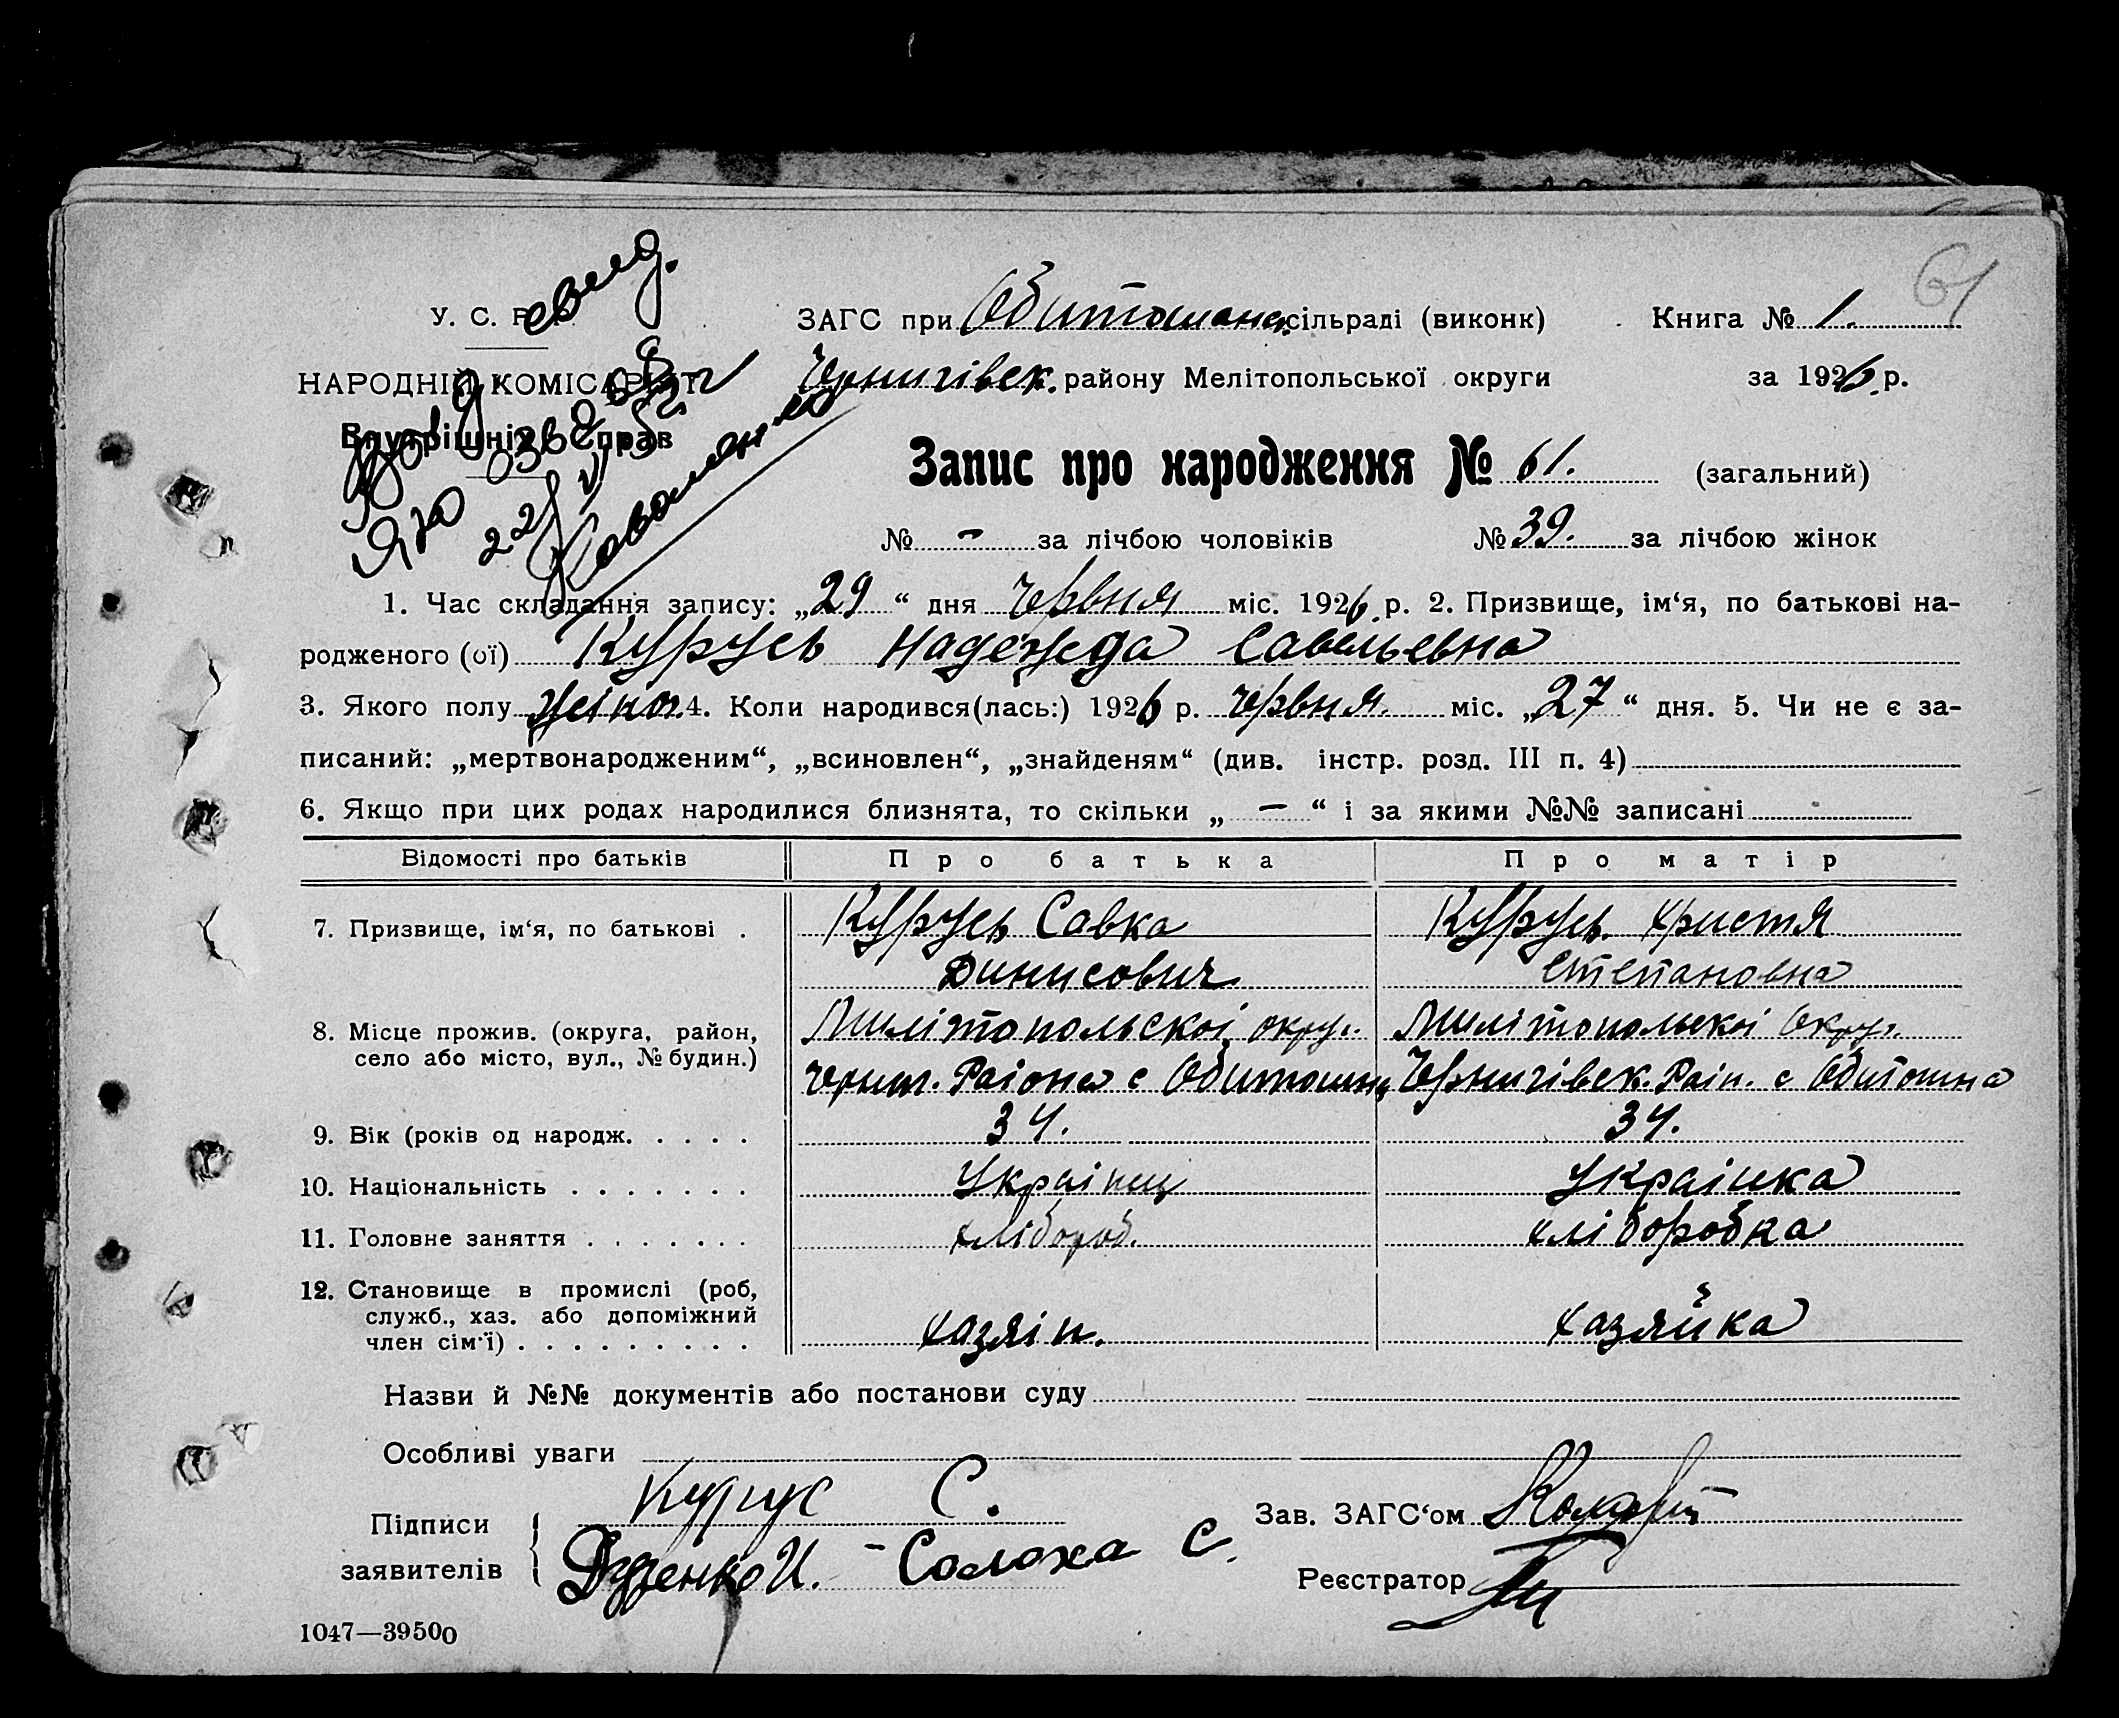 61
У. С. Р. Р.
свид.
ЗАГС при Обитошанс. сільраді (виконк)
Книга № 1.
НАРОДНІЙ КОМІСАРІЯТ
Чернигівск. району Мелітопольської округи
за 1926 р.
Внутрішніх Справ
Запис про народження № 61. (загальний)
№ - за лічбою чоловіків № 39. за лічбою жінок
1. Час складання запису: „29“ дня Червня міс. 1926 р. 2. Призвище, ім‘я, по батькові на-
родженого (ої) Курусь Надежда Савельевна
3. Якого полу жіноч. 4. Коли народився(лась:) 1926 р. Червня. міс. „27“ дня. 5. Чи не є за-
писаний: „мертвонародженим“, „всиновлен“, „знайденям“ (див. інстр. розд. III п. 4)
6. Якщо при цих родах народилися близнята, то скільки „—“ і за якими №№ записані
Відомості про батьків Про батька Про матір
7. Призвище, ім‘я, по батькові . Курусь Савка Курусь. Христя
Динисович Степановна
8. Місце прожив. (округа, район, Милітопольскоі окру. Милітопольскоі Окру.
село або місто, вул., № будин.) Черниг. Раіона с Обиточна Чернигівск. Раін. с Обиточна
9. Вік (років од народж. . . . . 34. 34.
10. Національність . . . . . . . Украінец Украінка
11. Головне заняття . . . . . . . хлібороб. хліборобка
12. Становище в промислі (роб,
служб., хаз. або допоміжний
член сім‘ї) . . . . . . . . . хазяін. хазяйка
Назви й №№ документів або постанови суду
Особливі уваги
Підписи Курус С. Зав. ЗАГС‘ом
заявителів Дяденко И. - Солоха С. Реєстратор
1047—39500